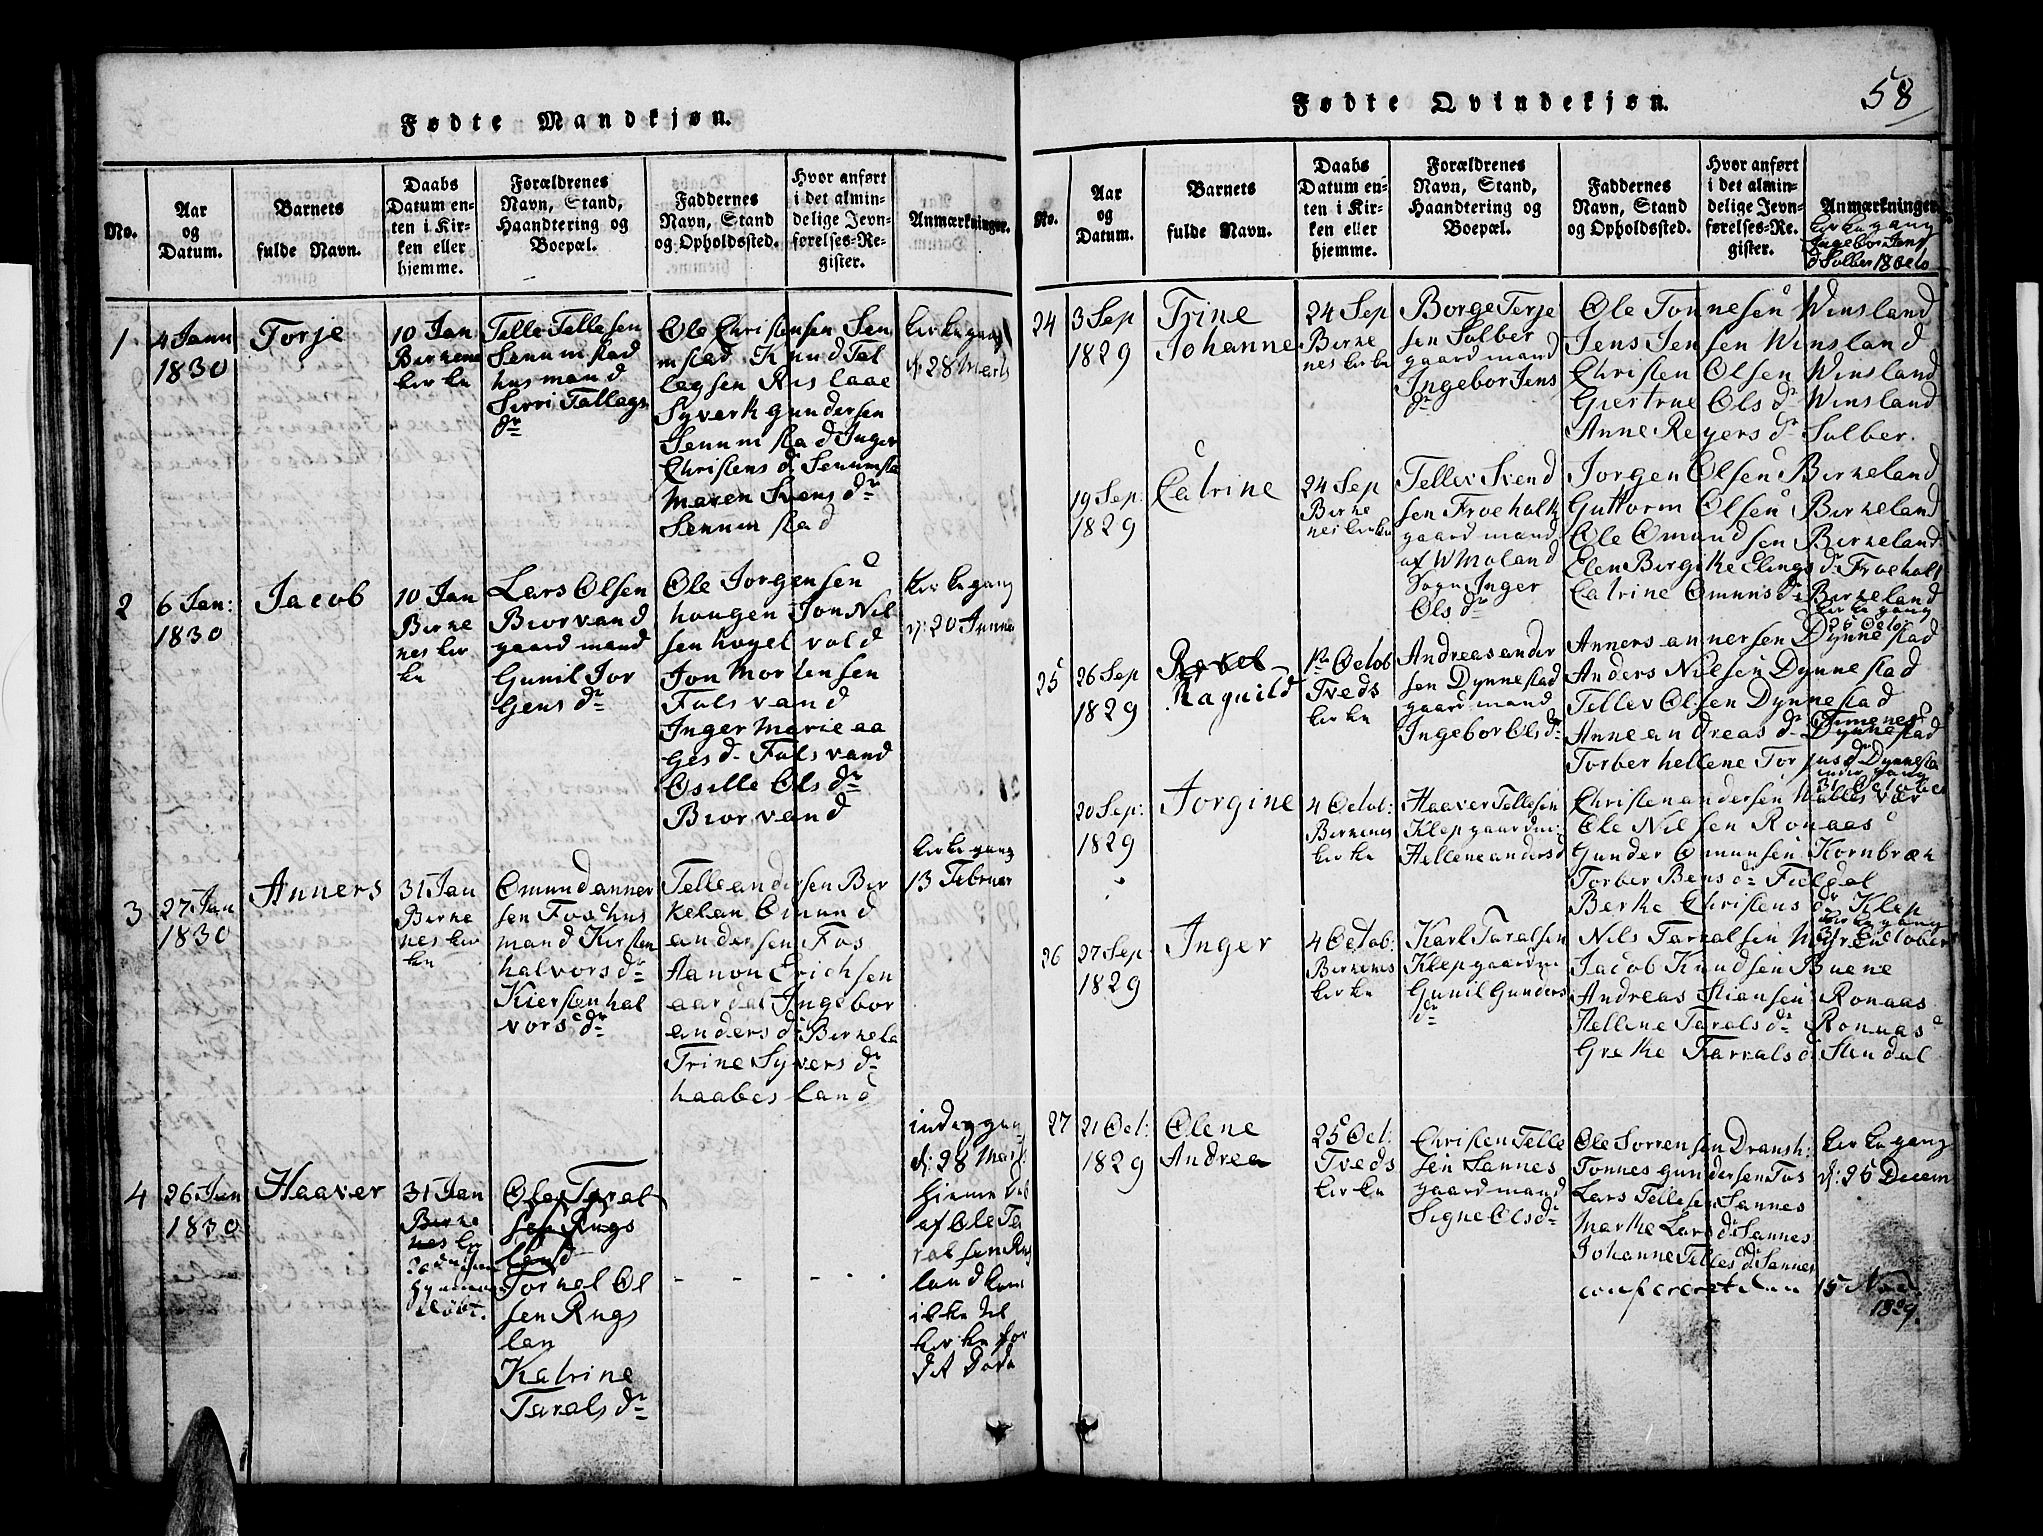 58
Fødte Mandkjøn.
No.
Aar
og
Datum.
Barnets
fulde Navn.
Daabs
Datum en-
ten i Kir-
ken eller
hjemme.
Forældrenes
Navn, Stand,
Haandtering og
Boepæl.
Faddernes
Navn, Stand
og Opholdssted.
Hvor anført
i det almin-
delige Jevn-
førelses-Re-
gister.
Anmærkninger.
1
4 Janu
1830
Torje
10 Jan
Birkene
kirke
Telle Tellesen
Senumstad
husmand
Sirri Tallags
dr
Ole Christensen Sen
mstad Knud Tal
lagsen Rislaae
Syvert gundersen
Senumstad Inger
Christens dr Senumsta
Maren Svens dr
Senumstad
kirkegang
d: 28 Marts
2
6 Jan:
1830
Jacob
10 Jan
Birke
nes kir
ke
Lars Olsen
Biorvand
gaardmand
Gunil Jor
gens dr
Ole Jorgensen
hougen Jon Nil
sen hogel vold
Jon Mortensen
Fols vand
Inger Marie aa
ges d Fals vand
Osille Ols dr
Biorvand
kirkegang
d: 20 Junne
3
27 Jan
1830
Anners
31 Jan
Birke
nes kir
ke
Omund anner
sen Foss hus
mand Kirsten
halvors dr
Kiersten hal
vors dr
Telle andersen Bir
kelan Omund
andersen Fos
Aanon Erichsen
aardal Ingebor
anders d Birkela
Trine Syvers dr
haabesland
kirkegang
13 Februar
4
26 Jan
1830
Haaver
31 Jan
Birke
nes kir
døbt.
Ole Taral
sen Rugs
land
Tornel Ol
sen Rugs
len
Katrine
Tarals dr
indeggang
d: 28 Mars
hiemme døb
af Ole Ta
ralsen Rug
land kom
ikke til
kirke for
dit Døde
Fødte Qvindekjøn.
No.
Aar
og
Datum.
Barnets
fulde Navn.
Daabs
Datum en-
ten i Kir-
ken eller
hjemme.
Forældrenes
Navn, Stand,
Haandtering og
Boepæl.
Faddernes
Navn, Stand
og Opholdsted.
Hvor anført
i det almin-
delige Jevn-
førelses-Re-
gister.
Anmærkninger.
kirkegang
Ingebor Jens
d Solber 18 Octo
24
3 Sep
1829
Trine
Johanne
24 Sep
Birke
nes kirke
Borge Terje
sen Solber
gaardmand
Ingebor Jens
dr
Ole Tonnesen Winsland
Jens Jensen Winsland
Christen Olsen Winsland
Giertrue Ols dr Winsland
Anne Reyers dr Solber.
19 Sep:
1829
Catrine
24 Sep
Birke
nes kirke
Tellev Svend
sen Froeholt
gaardmand
af W Moland
Sogn Inger
Ols dr
Jorgen Olsen Birkeland
Guttorm Olsen Birkeland
Ole Omundsen Birkeland
Elen Birgitte Elings dr Froeholt
Catrine Omuns dr Birkeland
kirkegang
25 Octo
25
26 Sep
1829
Rakel
Raguild
1te Octob
Tveds
kirke
Andreas ander
sen Dynnestad
gaardmand
Ingebor Ols dr
Anners annersen Dynnestad
Anders Nilsen Dynnestad
Tellev Olsen Dynnestad
Anne andreas dr Dynnestad
Torber hellene Torjus dr Dynnesta
20 Sep:
1829
Jorgine
4 Octob:
Birkenes
kirke
Haaver Tellesen
Klep gaardm:
Hellene anders d
Christen andersen Wallesvær
Ole Nilsen Ronaas
Gunder Omunsen Kornbræk
Torber Bens dr Fieldal
Berte Christens dr Klep
31 October
26
27 Sep:
1829
Inger
4 Octob:
Birkenes
kirke
Karl Taralsen
Klep gaardm
Gunil Gunders
dr
Nils Tarralsen Myre
Jacob Knudsen Buene
Andreas Stiansen Ronaas
Hellene Tarals dr Ronaas
Grethe Tarrals d Stendal
27
21 Oct:
1829
Olene
Andrea
25 Oct:
Tveds
kirke
Christen Telle
sen Sannes
gaardmand
Signe Ols dr
Ole Sorrensen Dransh:
Tonnes gundersen Fos
Lars Tellesen Sannes
Marthe Lars d Sannes
Johanne Telles d Sannes
kirkegang
d: 26 Decem
confereret den 15 Nov
1829.